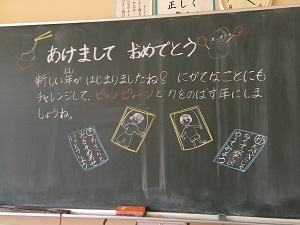 正しく
あけまして おめでとう
新しい年がはじまりましたね。にがてなことにも
チャレンジして、ピョンピョーンと力をのばす年にしま
しょうね。